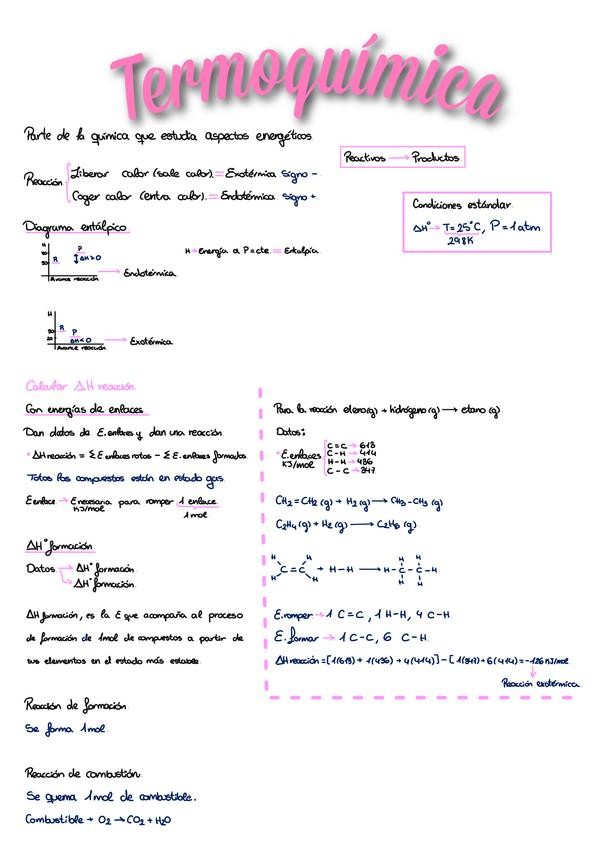 Termoquímica
Parte de la química que estudia aspectos energéticos
Reactivos → Productos
Reacción
Liberar calor (sale calor). = Exotérmica signo -
Coger calor (entra calor). = Endotérmica signo +
Condiciones estándar
ΔH° → T=25°C, P=1atm
298K
Diagrama entálpico
H → Energía a P=cte = Entalpía
H
R
P
ΔH>0
Avance reacción
→ Endotérmica
H
R
P
ΔH<0
Avance reacción
→ Exotérmica
Calcular ΔH reacción.
Con energías de enlaces
Dan datos de E.enlaces y dan una reacción
* ΔH reacción = Σ E enlaces rotos - Σ E. enlaces formados
Todos los compuestos están en estado gas
E enlace → E necesaria para romper 1 enlace
KJ/mol
1mol
ΔH° formación
Datos → ΔH° formación
→ ΔH° formación
ΔH formación, es la E que acompaña al proceso
de formación de 1mol de compuestos a partir de
sus elementos en el estado más estable
Reacción de formación
Se forma 1mol
Reacción de combustión
Se quema 1mol de combustible.
Combustible + O₂ → CO₂ + H₂O
Para la reacción eteno(g) + hidrógeno(g) → etano (g)
Datos:
* E.enlaces
KJ/mol
C=C → 613
C-H → 414
H-H → 436
C-C → 347
CH₂=CH₂(g) + H₂(g) → CH₃-CH₃(g)
C₂H₄(g) + H₂(g) → C₂H₆(g)
H H
C=C + H-H → H-C-C-H
H H
E.romper → 1 C=C, 1 H-H, 4 C-H
E.formar → 1 C-C, 6 C-H
ΔH reacción = [1(613) + 1(436) + 4(414)] - [1(347) + 6(414)] = -126 KJ/mol
Reacción exotérmica